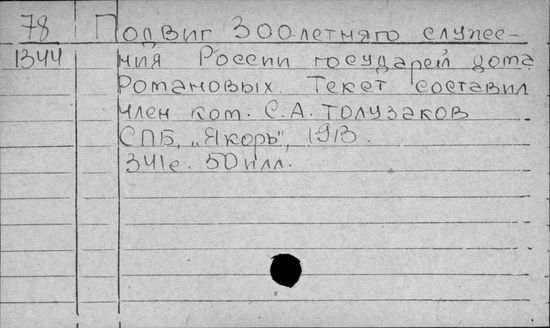 78 Подвиг 300-летняго служе-
1344 ния России государей дома
Романовых. Текст составил
член ком. С.А. Толузаков
СПБ, „Якорь", 1913.
341с. 50 илл.